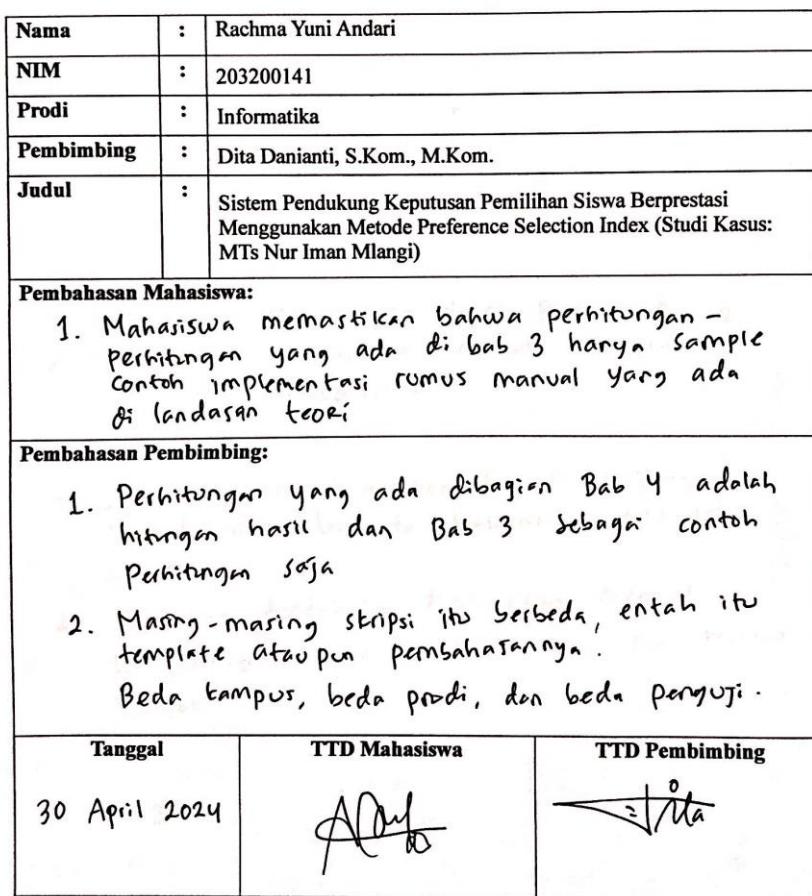 Nama : Rachma Yuni Andari
NIM : 203200141
Prodi : Informatika
Pembimbing : Dita Danianti, S.Kom., M.Kom.
Judul : Sistem Pendukung Keputusan Pemilihan Siswa Berprestasi
Menggunakan Metode Preference Selection Index (Studi Kasus:
MTs Nur Iman Mlangi)
Pembahasan Mahasiswa:
1. Mahasiswa memastikan bahwa perhitungan -
perhitungan yang ada di bab 3 hanya sample
contoh implementasi rumus manual yang ada
di landasan teori
Pembahasan Pembimbing:
1. Perhitungan yang ada dibagian Bab 4 adalah
hitungan hasil dan Bab 3 sebagai contoh
Perhitungan saja
2. Masing-masing skripsi itu berbeda, entah itu
template ataupun pembahasannya.
Beda kampus, beda prodi, dan beda penguji.
Tanggal TTD Mahasiswa TTD Pembimbing
30 April 2024